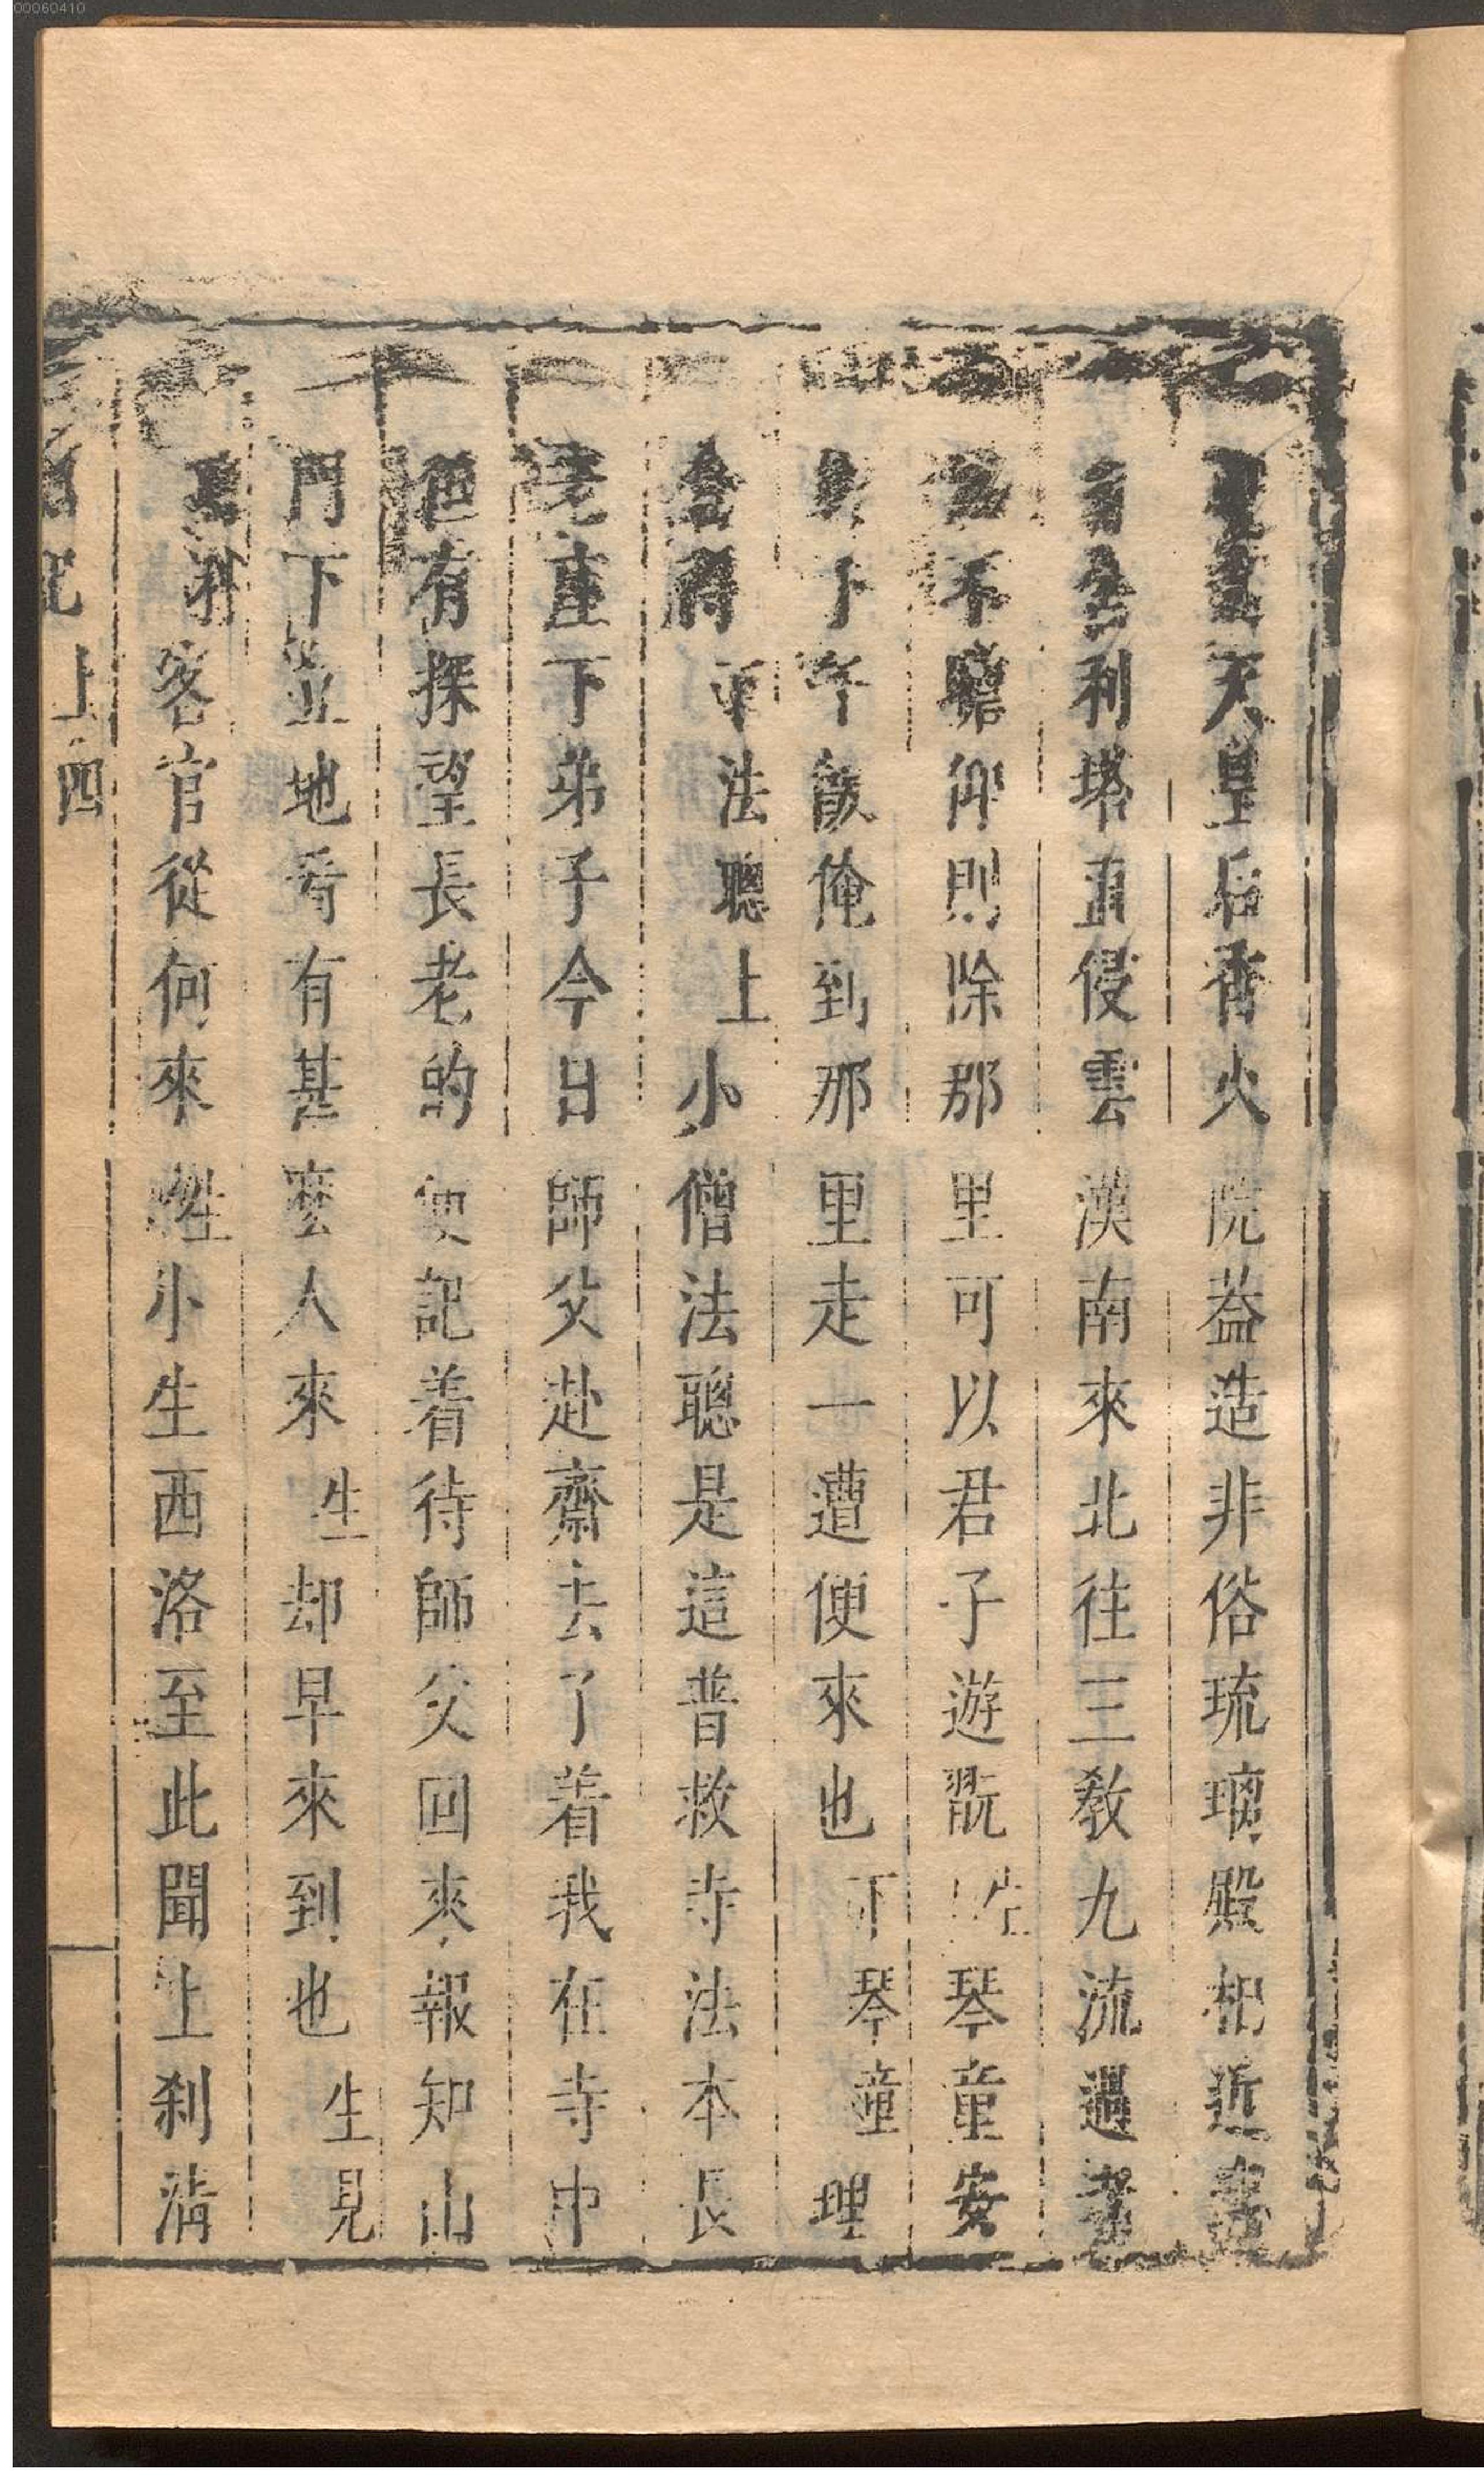 則天皇后香火院葢造非俗琉璃殿相近
舍利塔直侵雲漢南來北徃三敎九流過者
不瞻仰則除那里可以君子遊翫生琴童安
下午飯俺到那里走一遭便來也下琴童理
法聰上小僧法聰是這普救寺法本長
老座下弟子今日師父赴齋去了着我在寺中
但有探望長老的便記着待師父回來報知山
門下立地看有甚麼人來生却早來到也生見
客官從何來生小生西洛至此聞上刹淸
西記上四
00060410